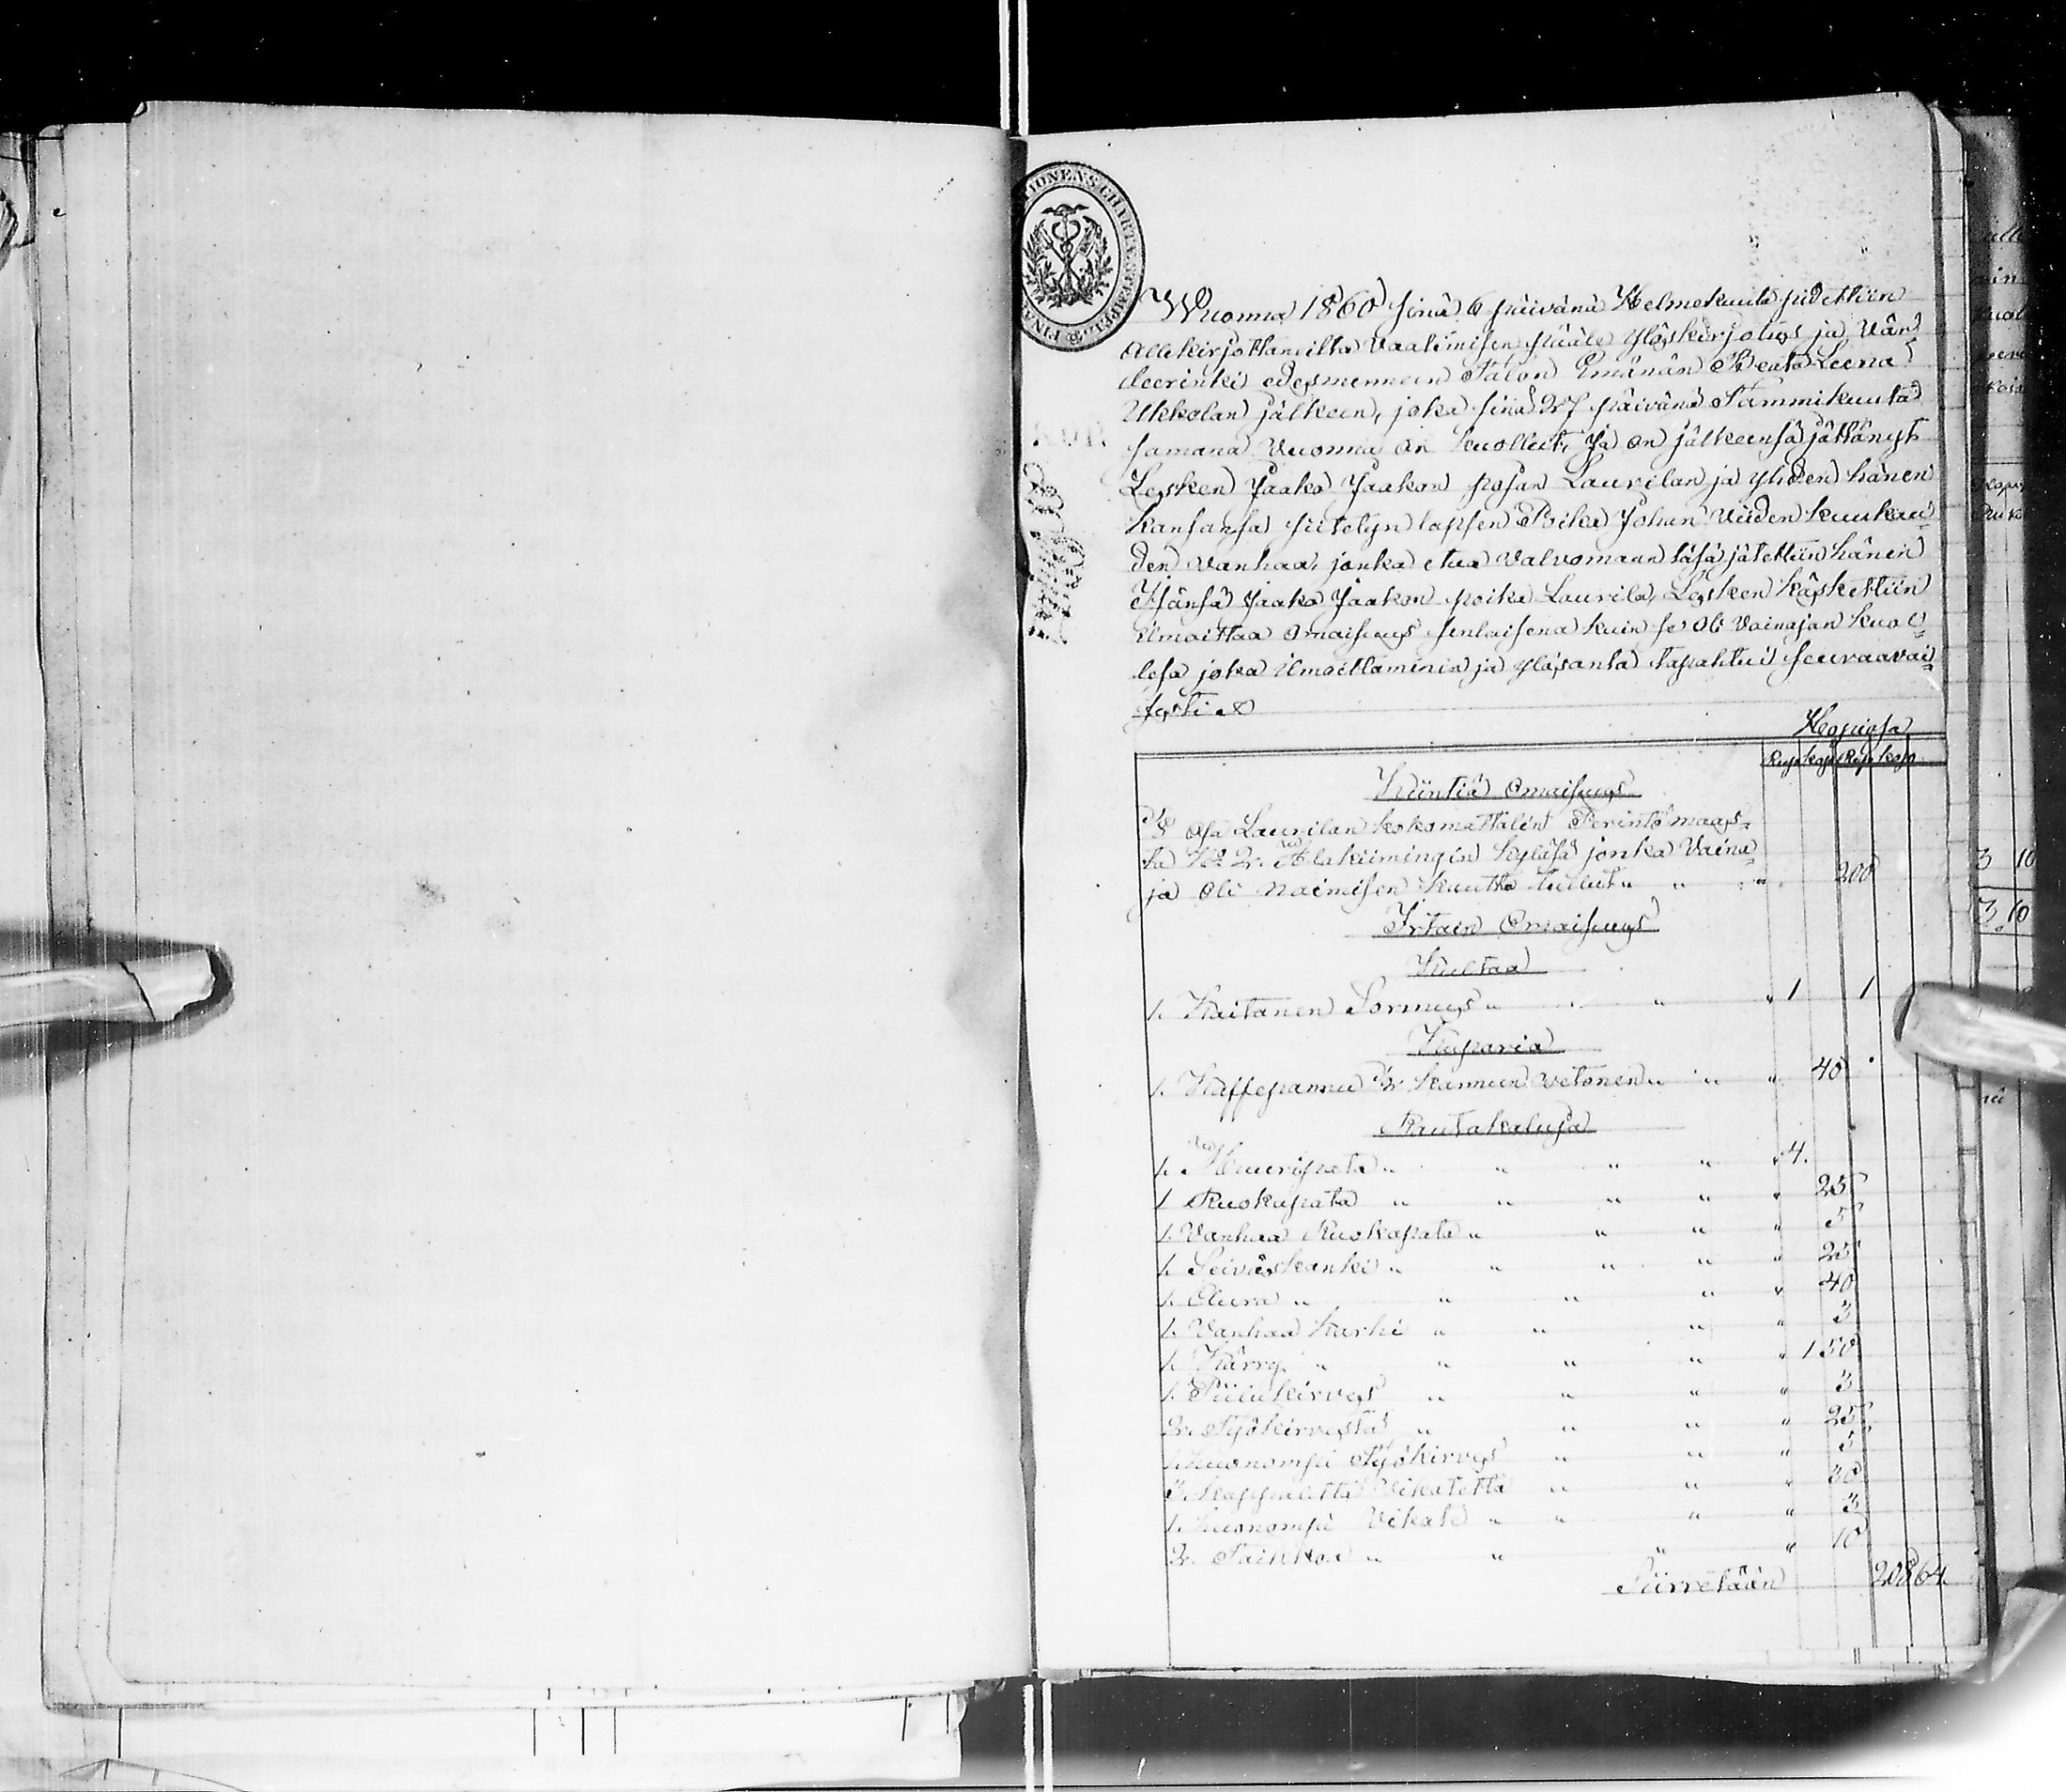 Wuonna 1860 sinä 6 päivänä Helmekuuta pidettiin
Allekirjottaneilta Vaatimisen pääle ylöskirjotus ja Vär
deerinki edesmenneen Talon Emänän Beata Leena
Ukkolan jälkeen, joka sinä 27 päivänä Tammikuuta
samana Vuonna on kuollut, Ja on jälkeensä jättänyt
Lesken Jaako Jaakon pojan Laurilan ja yhden hänen
kansansa siitetyn lapsen Poika Johan Viiden kuukau=
den vanhaa, jonka etua valvomaan täsä jätettiin hänen
Isänsä Jaako Jaakon poika Laurila, Lesken käskettiin
ilmoittaa Omaisuus senlaisena kuin se Oli Vainajan kuol=
lesa joka ilmoittaminen ja ylösanto tapahtui seuraavai=
sesti
Hopiosa
Rup kop Rup kop
Kiintiä Omaisuus
Osa Laurilan kokomattalin Perintö maas=
ta No 2. Alakiimingin kyläsä jonka Vaina=
ja Oli Naimisen kautta tullut " " " 200
Irtain Omaisuus
Kultaa
1. Kaitanen Sormus " " " " 1 1
Kuparia
1. Kaffepannu ½ kannun Vetonen " " " 40
Rautakaluja
1. Muuripata " " " " " 4.
1 Ruokapata " " " " " 25
1. Vanhaa Ruokapata " " " " 5
1. Seiväskanki " " " " " 25
1. Aura " " " " " 40
1. Vanhaa karhi " " " " 3
1. Kärry " " " " " 1 50
1. Piilukirves " " " " 3
2. Työkirvestä " " " " 25
1. Huonompi Työkirves " " " 5
3. kappaletta Vikatetta " " " 30
1. Huonompi Vikate " " " " 3
2. " " " " 10
Siirretään 208 64